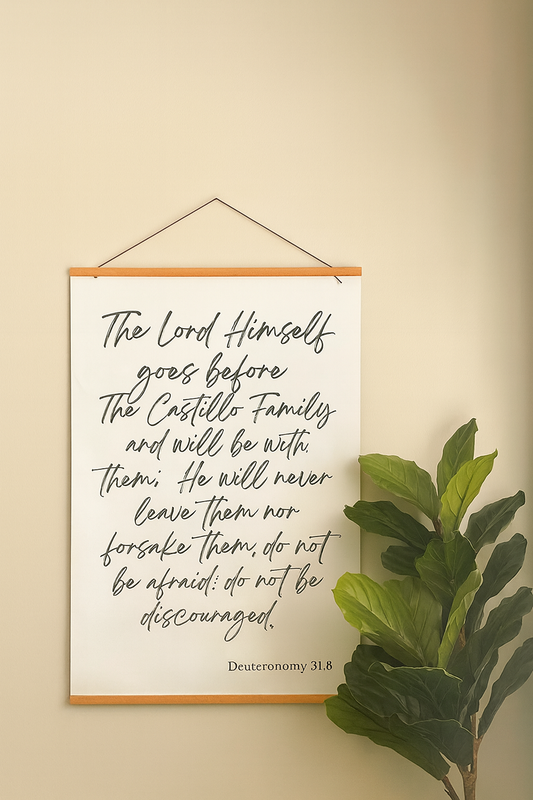 The Lord Himself
goes before
The Castillo Family
and will be with
them; He will never
leave them nor
forsake them, do not
be afraid: do not be
discouraged.
Deuteronomy 31.8